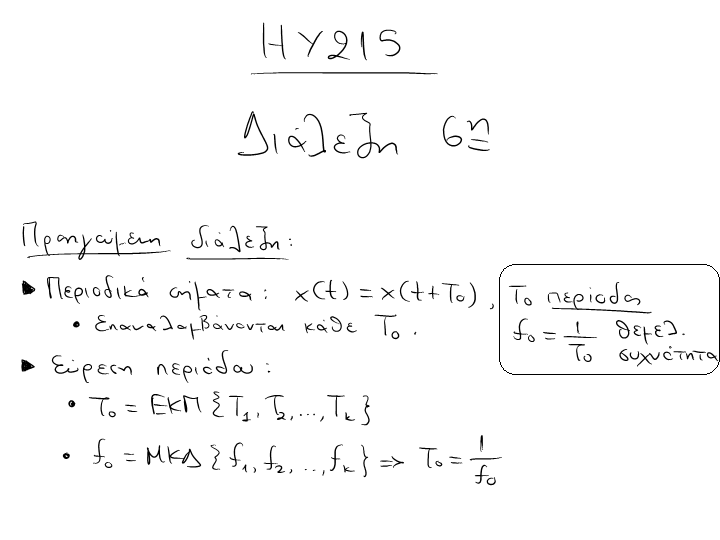 ΗΥ215
Διάλεξη 6η
Προηγούμενη διάλεξη:
► Περιοδικά σήματα: x(t) = x(t+T₀), T₀ περίοδος
• Επαναλαμβάνονται κάθε T₀.
f₀ = 1/T₀ θεμελ. συχνότητα
► Εύρεση περιόδου:
• T₀ = ΕΚΠ {T₁, T₂, ..., Tₖ}
• f₀ = ΜΚΔ {f₁, f₂, .., fₖ} => T₀ = 1/f₀